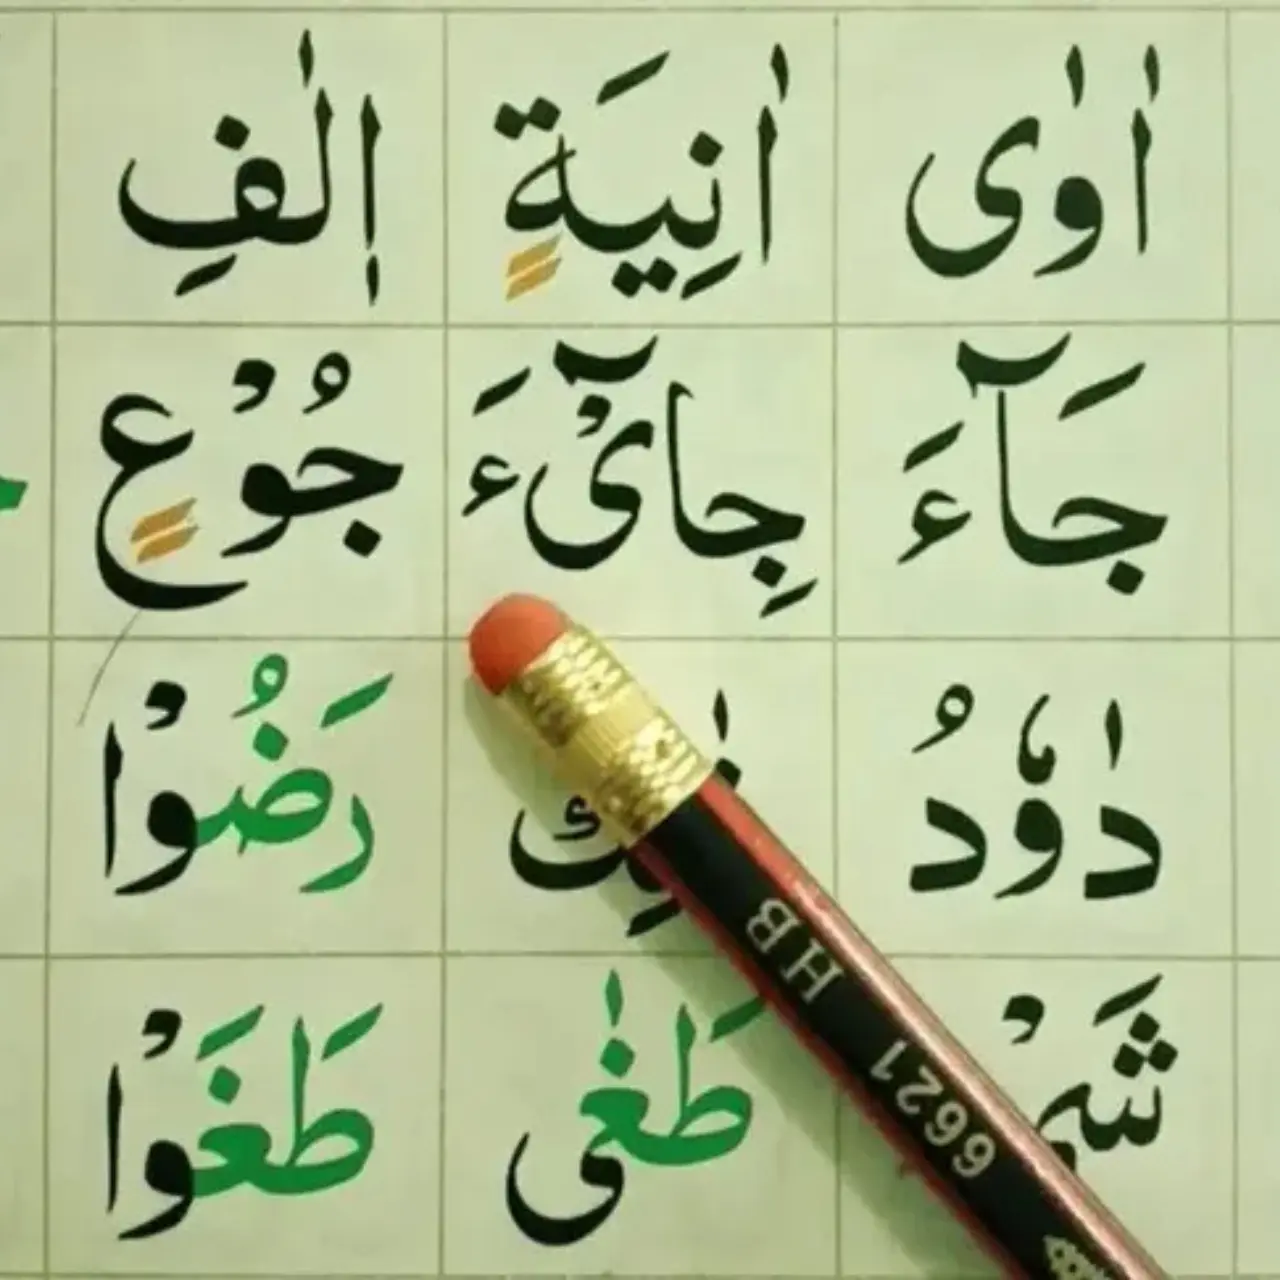 اٰوٰى اٰنِيَةٍ اٖلٰفِ
جَآءَ جِایْٓءَ جُوْعٍ
دٰاوٗدُ رَضُوْا
طَغٰى طَغَوْا
HB 6621